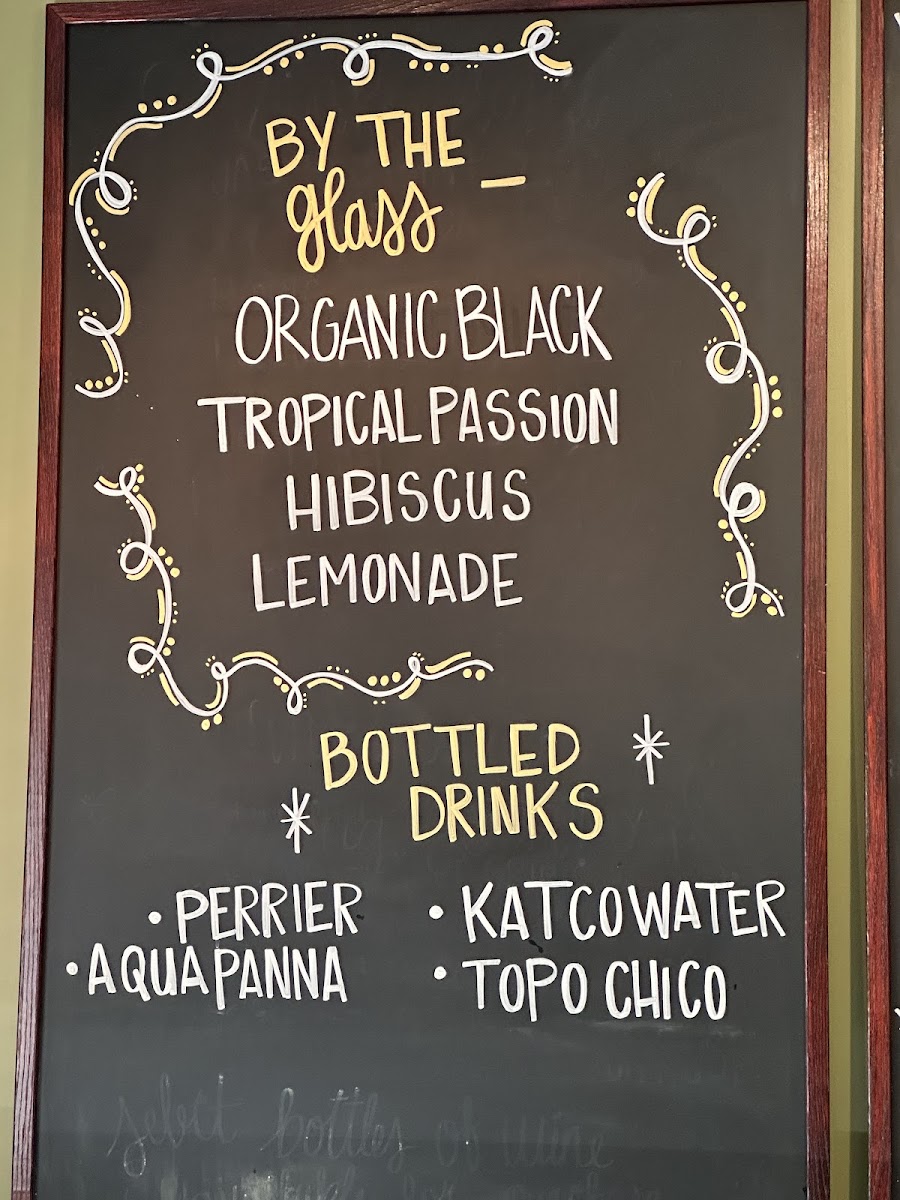 BY THE
glass –
ORGANIC BLACK
TROPICAL PASSION
HIBISCUS
LEMONADE
BOTTLED
DRINKS
• PERRIER
• AQUA PANNA
• KATCO WATER
• TOPO CHICO
select bottles of wine